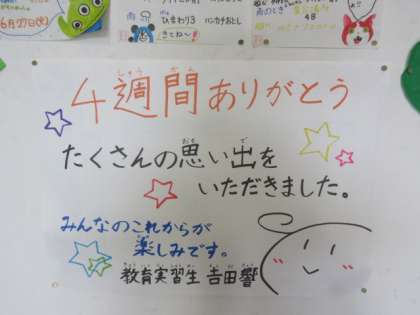 6月27日(水)
ひまわり3
ハンカチおとし
きてね〜!
4B
4週間ありがとう
たくさんの思い出を
いただきました。
みんなのこれからが
楽しみです。
教育実習生 吉田響